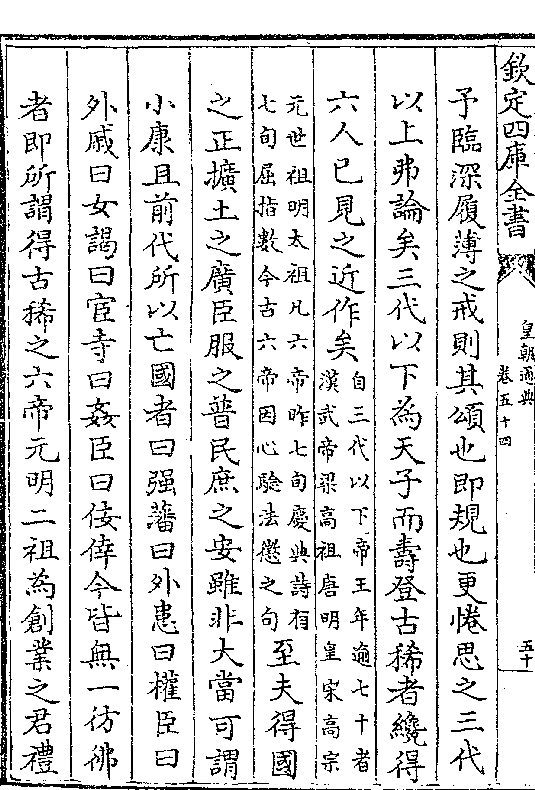 欽定四庫全書
皇朝通典
卷五十四
五十
予臨深履薄之戒則其頌也即規也更惓思之三代
以上弗論矣三代以下為天子而壽登古稀者纔得
六人已見之近作矣
自三代以下帝王年逾七十者
漢武帝梁高祖唐明皇宋高宗
元世祖明太祖凡六帝昨七旬慶典詩有
七旬屈指數今古六帝因心驗法懲之句
至夫得國
之正擴土之廣臣服之普民庶之安雖非大當可謂
小康且前代所以亡國者曰强藩曰外患曰權臣曰
外戚曰女謁曰宦寺曰姦臣曰佞倖今皆無一彷彿
者即所謂得古稀之六帝元明二祖為創業之君禮